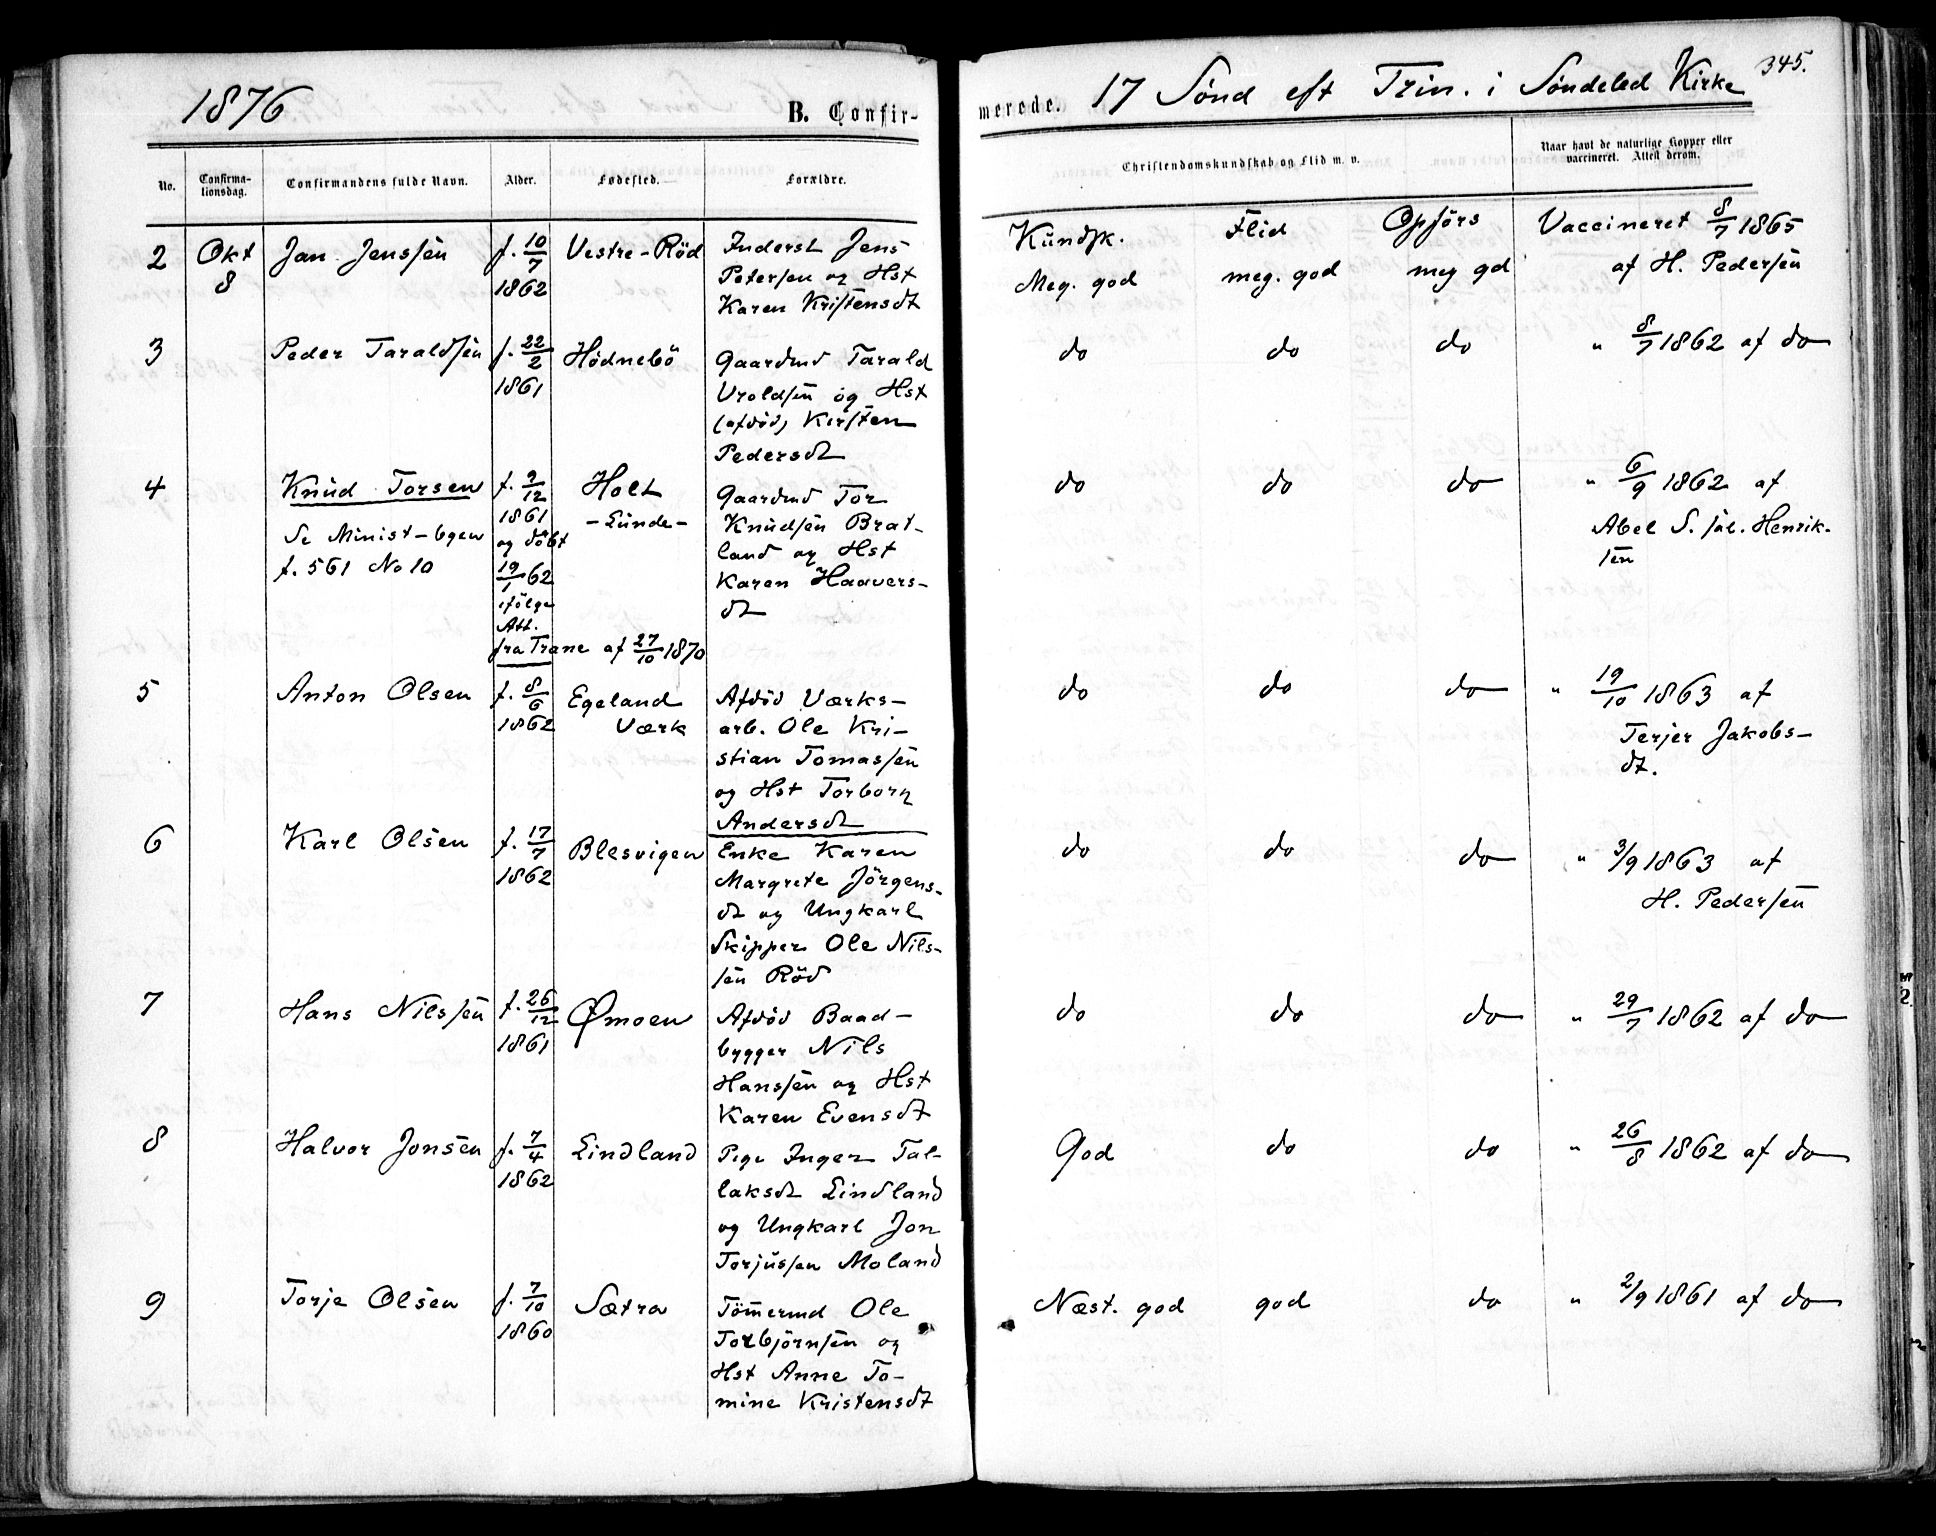 1876 B. Confir-
merede. 17 Sønd eft Trin. i Søndeled Kirke 345.
No. Confirma-
tionsdag. Confirmandens fulde Navn. Alder. Fødested. Forældre.
Christendomskundskab og Flid m. v. Naar havt de naturlige Kopper eller
vaccineret. Attest derom.
2 Okt
8 Jan Jenssen f. 10/7
1862 Vestre-Röd Inderst Jens
Petersen og Hst
Karen Kristensdt
Kundsk. Flid Opförs
Meg. god meg. god meg gd
Vaccineret 8/7 1865
af H. Pedersen
3 Peder Taraldsen f. 22/2
1861 Hödnebö Gaardmd Tarald
Uroldsen og Hst
(afdöd) Kirsten
Pedersdt
do do do " 8/7 1862 af do
4 Knud Torsen
Se Minist-bgen
f. 561 No 10
f. 9/12
1861
og döbt
19/1 62
ifölge
Att.
fra Trane af 27/10 1870
Holt
-Lunde-
Gaardmd Tor
Knudsen Brat-
land og Hst
Karen Haavers-
dt
do do do " 6/9 1862 af
Abel S. sal. Henrik-
sen
5 Anton Olsen f. 8/6
1862 Egeland
Værk
Afdöd Værks-
arb. Ole Kri-
stian Tomassen
og Hst Torborg
Andersdt
do do do " 19/10 1863 af
Terjer Jakobs-
dt.
6 Karl Olsen f. 17/7
1862 Blesvigen
Enke Karen
Margrete Jörgens-
dt og Ungkarl
Skipper Ole Nils-
sen Röd
do do do " 3/9 1863 af
H. Pedersen
7 Hans Nilssen f. 26/12
1861 Ømoen
Afdöd Baad-
bygger Nils
Hanssen og Hst
Karen Evensdt
do do do " 29/7 1862 af do
8 Halvor Jonsen f. 7/4
1862 Lindland
Pige Inger Tal-
laksdt Lindland
og Ungkarl Jon
Torjussen Moland
God do do " 26/8 1862 af do
9 Torje Olsen f. 7/10
1860 Sætra
Tömermd Ole
Torbjörnsen og
Hst Anne To-
mine Kristensdt
Næst. god god do " 2/9 1861 af do